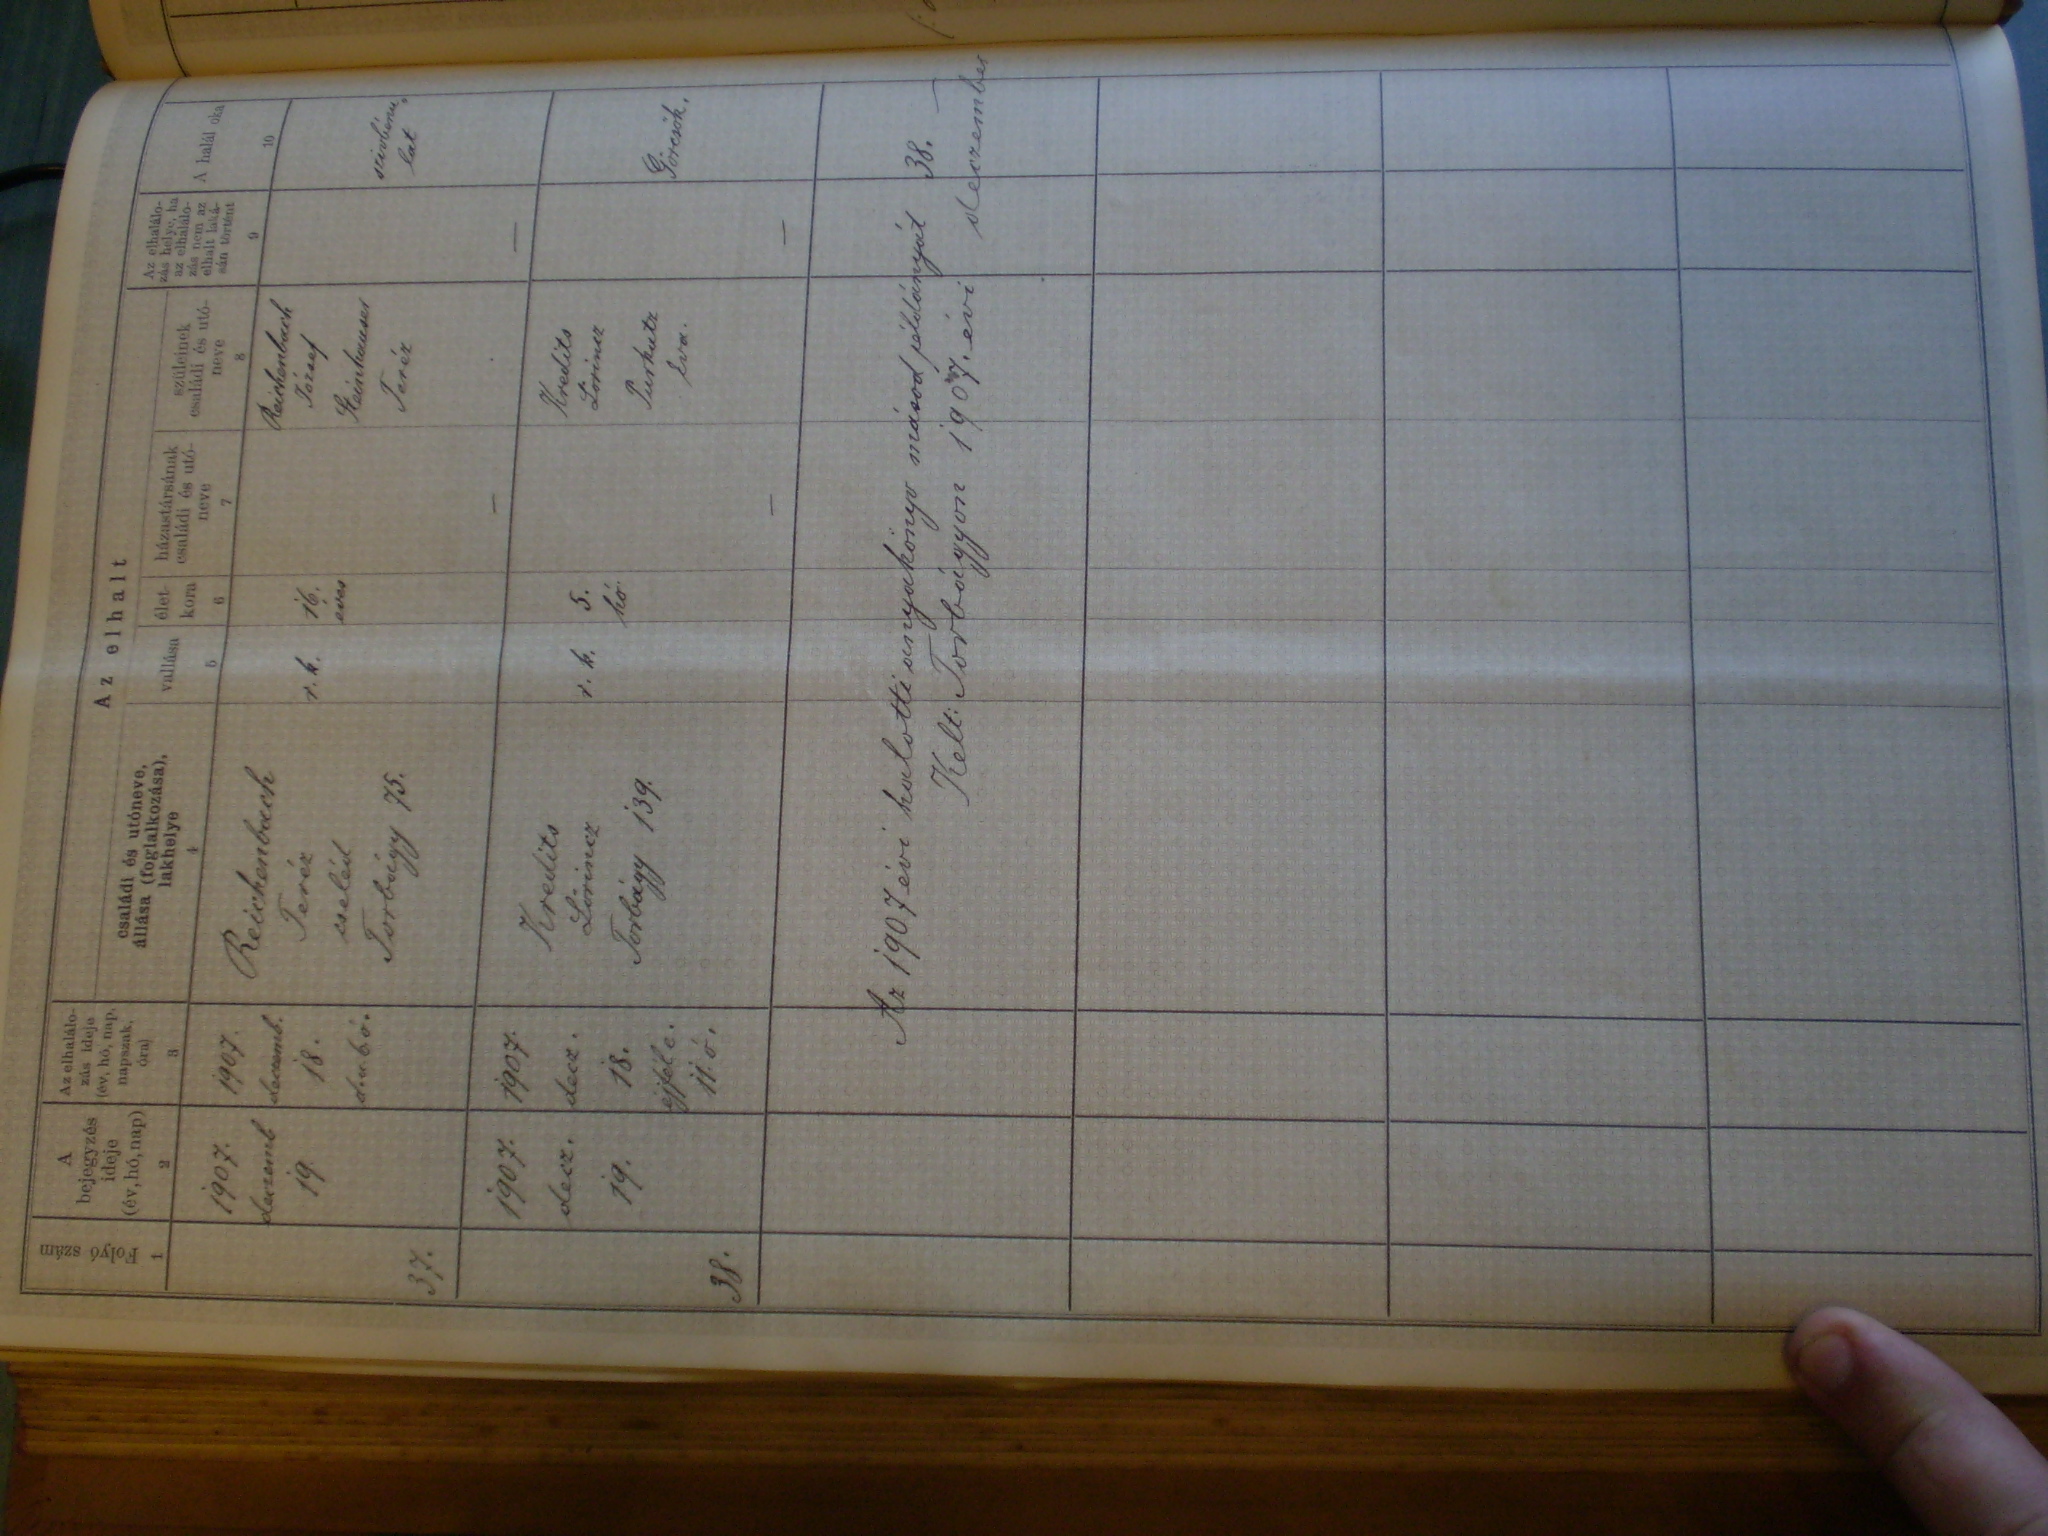 Az elhalt
Folyó szám
1
A
bejegyzés
ideje
(év, hó, nap)
2
Az elhaláло-
zás ideje
(év, hó, nap,
napszak,
óra)
3
családi és utóneve,
állása (foglalkozása),
lakhelye
4
vallása
5
élet-
kora
6
házastársának
családi és utó-
neve
7
szüleinek
családi és utó-
neve
8
Az elhalálo-
zás helye, ha
az elhalálo-
zás nem az
elhalt laká-
sán történt
9
A halál oka
10
37.
1907.
deczemb
19.
1907.
decemb.
18.
Reichenbach
Teréz
cseléd
Torbágy 75.
r. k.
16.
éves
—
Reichenbach
József
Steinhauser
Teréz
—
szivbénu-
lat
38.
1907.
decz.
19.
1907.
decz.
18.
éjféle.
11. ó.
Kredits
Lőrincz
Torbágy 139.
r. k.
5.
hó
—
Kredits
Lőrincz
Purkutz
Éva.
—
Görcsök.
Az 1907 évi halotti anyakönyv másod példányát 38. —
Kelt: Torbágyon 1907. évi deczember